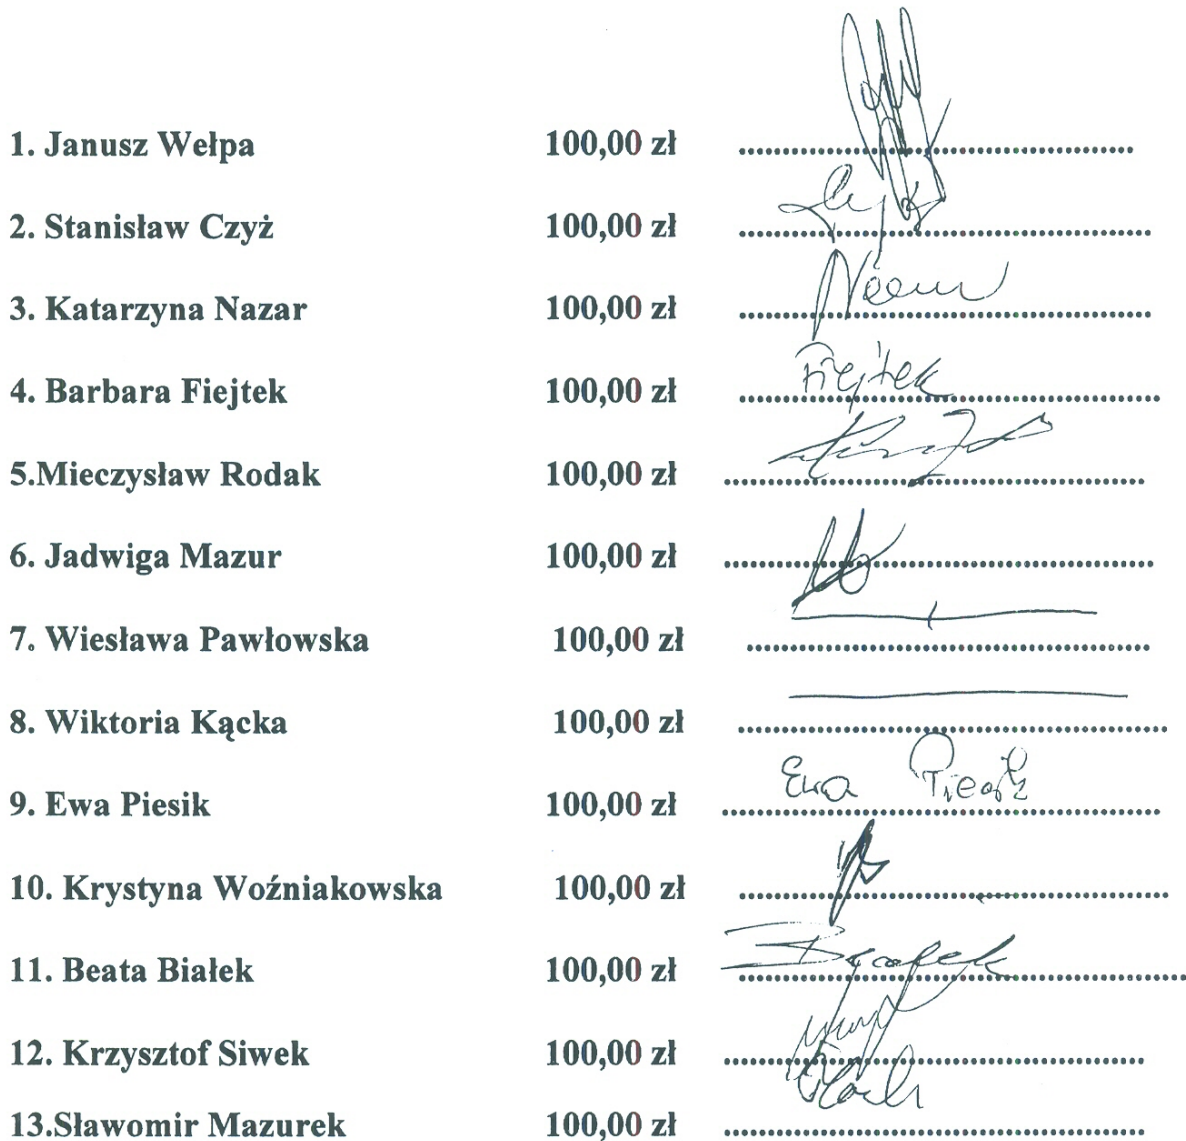 1. Janusz Wełpa 100,00 zł ..............................................
2. Stanisław Czyż 100,00 zł ..............................................
3. Katarzyna Nazar 100,00 zł ..............................................
4. Barbara Fiejtek 100,00 zł Fiejtek ..............................................
5.Mieczysław Rodak 100,00 zł ..............................................
6. Jadwiga Mazur 100,00 zł ..............................................
7. Wiesława Pawłowska 100,00 zł ..............................................
8. Wiktoria Kącka 100,00 zł ..............................................
9. Ewa Piesik 100,00 zł Ewa Piesik ..............................................
10. Krystyna Woźniakowska 100,00 zł ..............................................
11. Beata Białek 100,00 zł ..............................................
12. Krzysztof Siwek 100,00 zł ..............................................
13.Sławomir Mazurek 100,00 zł ..............................................